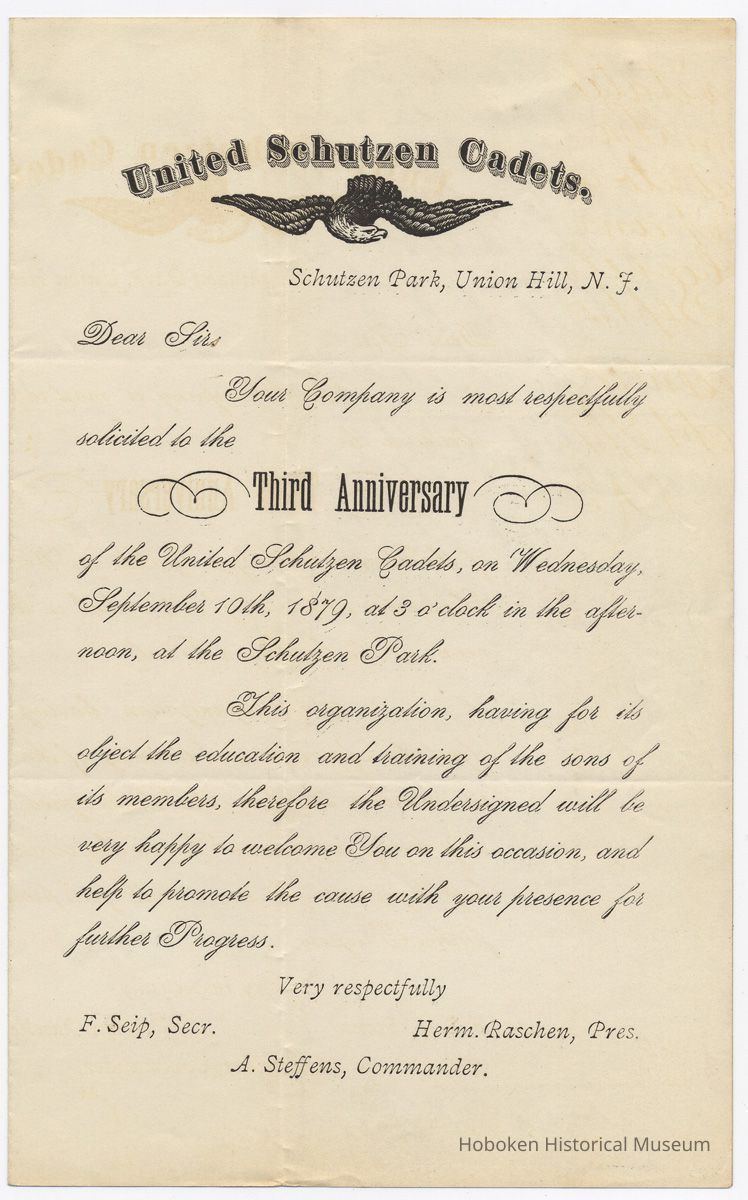 United Schutzen Cadets.
Schutzen Park, Union Hill, N. J.
Dear Sirs
Your Company is most respectfully
solicited to the
Third Anniversary
of the United Schutzen Cadets, on Wednesday,
September 10th, 1879, at 3 o'clock in the after-
noon, at the Schutzen Park.
This organization, having for its
object the education and training of the sons of
its members, therefore the Undersigned will be
very happy to welcome You on this occasion, and
help to promote the cause with your presence for
further Progress.
Very respectfully
F. Seip, Secr.
Herm. Raschen, Pres.
A. Steffens, Commander.
Hoboken Historical Museum